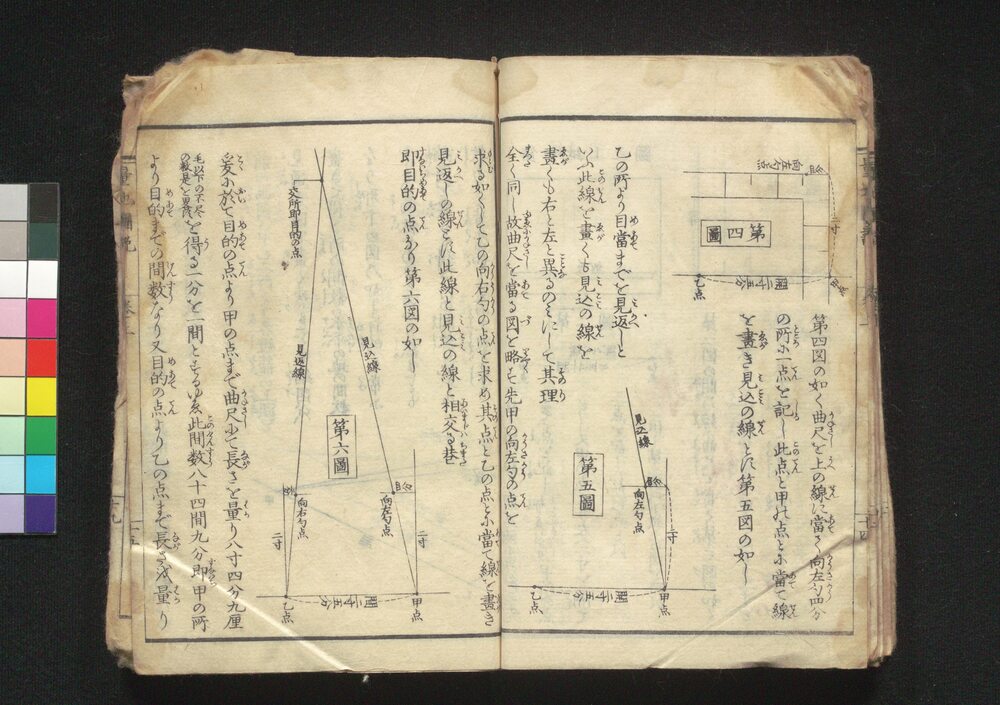 第四図の如く曲尺を上の線に当さく向左勾四分
の所に一点を記し此点と甲の点とに當て線
を畫き見込の線とは第五図の如し
乙の所より目當までを見返しと
いふ此線を畫くも見込の線を
畫くも右と左と異るのみにして其理
全く同し故曲尺を當る図を略す先甲の向左勾の点を
求る如くして乙の向右勾の点を求め其点と乙の点とに當て線を畫き
見返しの線とは此線と見込の線と相交る
即目的の点なり第六図の如し
爰に於て目的の点より甲の点まで曲尺にて長さを量り八寸四分九厘
毛以下の不尽
の数是を畧す
を得る一分を一間とするゆゑ此間数八十四間九分即甲の所
より目的までの間数なり又目的の点より乙の点まで長さを量り
第四圖
向左勾点
四分
二寸
乙点
第五圖
見込線
四分
向左勾点
二寸
甲点
乙点
第六圖
交所即目的の点
見込線
見込線
四分
向左勾点
向右勾点
二寸
二寸
甲点
乙点